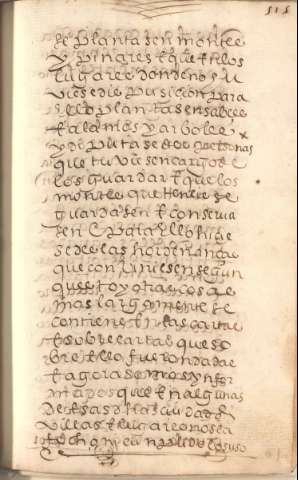 se plantasen montes
y pinares & que en los
lugares donde no ou
viese dispusicion para
ello plantasen salzes
& alamos y arboles
y diputasedes personas
que tuviesen cargo de
los guardar & que los
montes que teneis se
guardasen & conserva
sen & para ello hizie
sedes las hordenanças
que conviniesen segun
que esto y otras cosas
mas largamente se
contiene en las cartas
& sobrecartas que so
bre ello fueron dadas
& agora somos ynfor
mados que en algunas
desas dichas ciudades
villas & lugares no se a